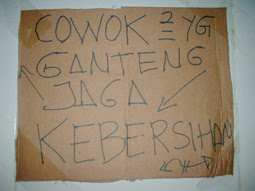 COWOK 2 YG
GANTENG
JAGA
KEBERSIHAN